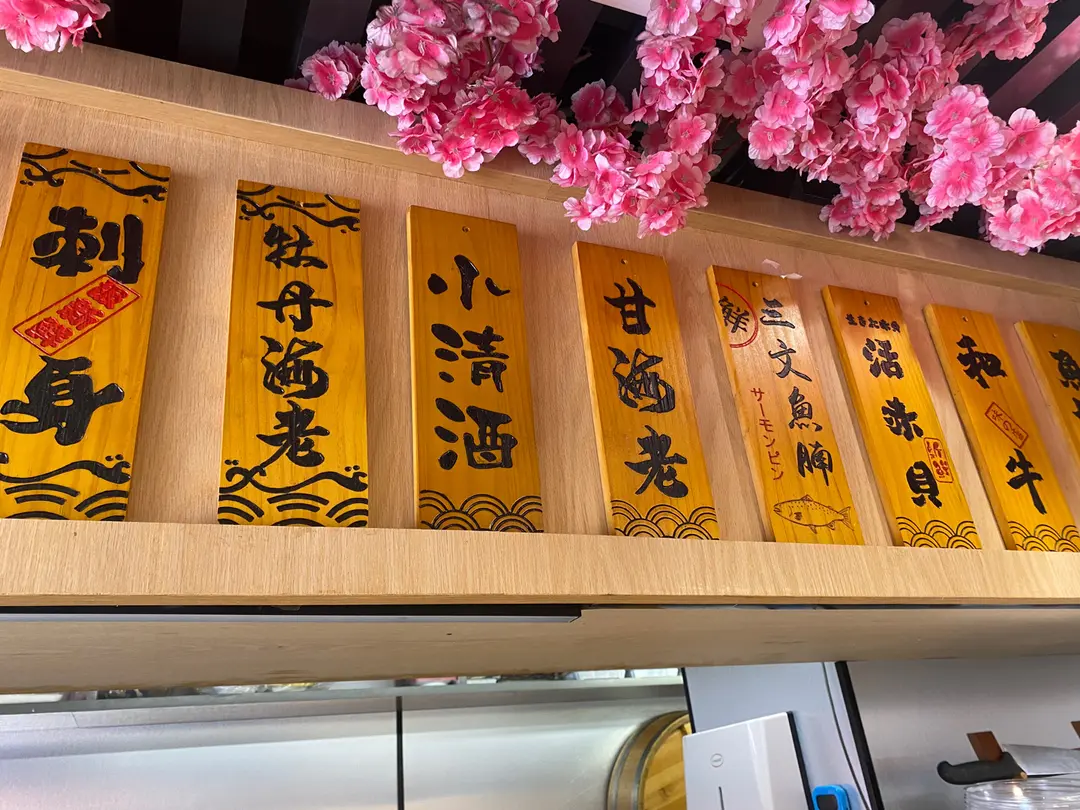 刺身
牡丹海老
小清酒
甘海老
鮮
三文魚腩
サーモンピン
活赤貝
和牛